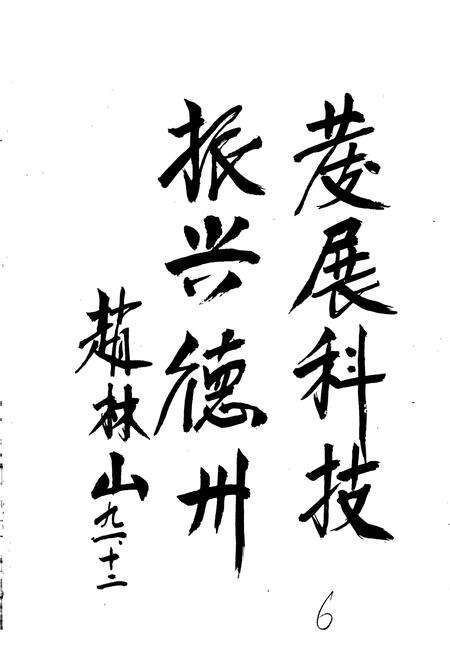 发展科技
振兴德州
趙林山
九一、十二
6